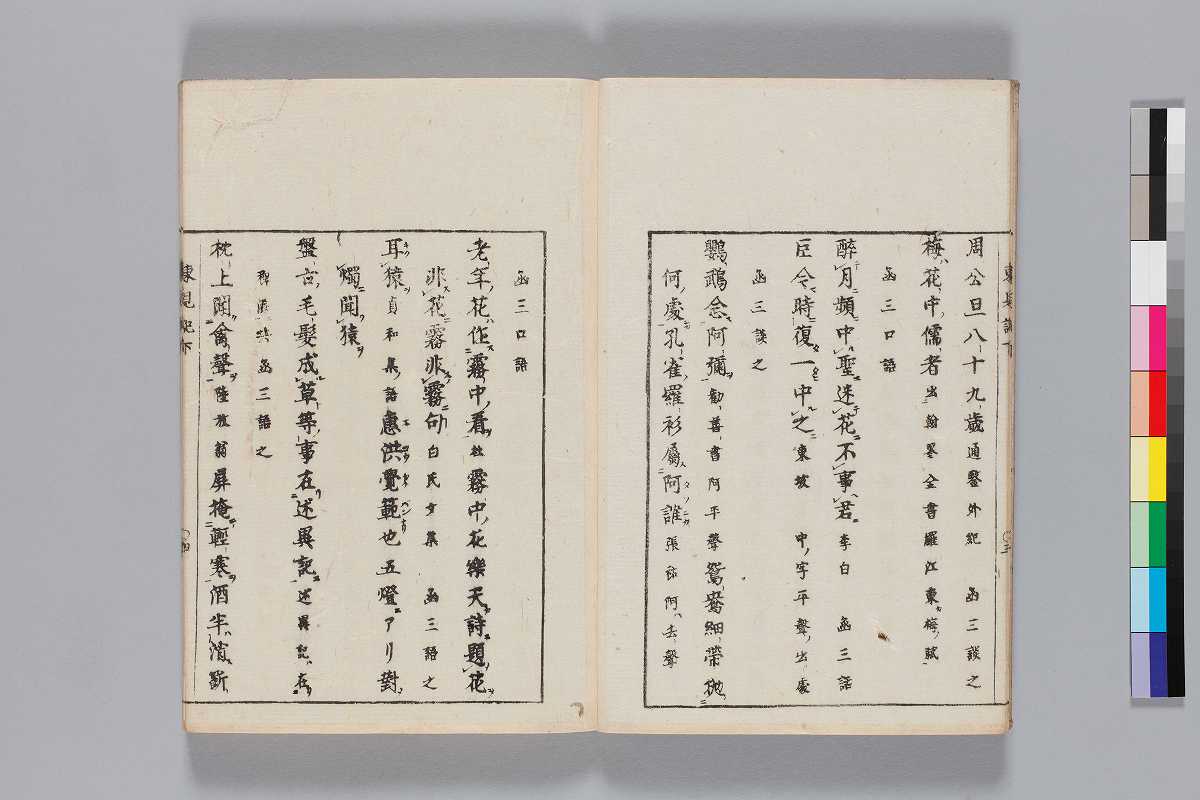 周公旦八十九歳通鑒外紀 函三談之
梅花中儒者出翰墨全書羅江東梅賦
函三口語
醉月頻中聖迷花不事君李白 函三話
臣今時復一中之東坡 中ノ字平聲出處
函三談之
鸚鵡念阿彌勧善書阿平聲鴛鴦細帶拋
何處孔雀羅衫屬阿誰張祜阿ハ去聲
函三口語
老年花作霧中看杜霧中花樂天詩題花
非花霧非霧句白氏文集 函三語之
耳猿貞和集語惠洪覺範也五燈ニアリ對
燭聞猿
盤古毛髮成草等事在述異記述異記在
函三語之
枕上聞禽聲陸放翁屏掩輕寒酒半